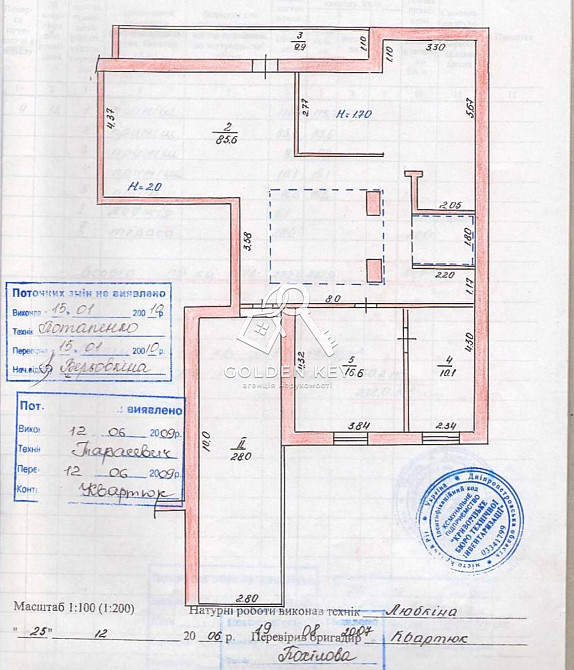 3
9.9
1.10
1.10
3.30
4.37
2
85.6
2.77
H=1.70
5.67
H=2.0
2.05
1.80
3.58
2.20
1.17
8.0
Поточних змін не виявлено
15. 01 2010р.
Потапенко
15. 01 2010р.
Верьовкіна
GOLDEN KEY
агенція нерухомості
4.32
5
16.6
4.30
4
10.1
3.84
2.34
10.0
II
28.0
Пот. : виявлено
12 06 2009р.
Тарасевич
12 06 2009р.
Квартюк
Україна * Дніпропетровська область * місто Кривий Ріг
Ідентифікаційний код 03341799
КОМУНАЛЬНЕ
ПІДПРИЄМСТВО
"КРИВОРІЗЬКЕ
БЮРО ТЕХНІЧНОЇ
ІНВЕНТАРИЗАЦІЇ"
2.80
Масштаб 1:100 (1:200) Натурні роботи виконав технік Любкіна
"25" 12 2006 р. Перевірив бригадир Квартюк
19 08 2007
Похілова